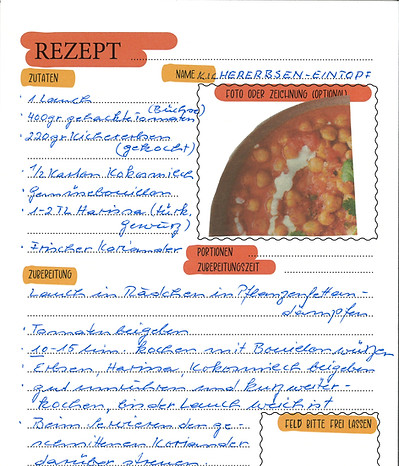 REZEPT
ZUTATEN
NAME KICHERERBSEN-EINTOPF
FOTO ODER ZEICHNUNG (OPTIONAL)
· 1 Lauch
(Büchse)
· 400gr gehackte Tomaten
· 220gr Kichererbsen
(gekocht)
· 1/2 Karton Kokosmilch
· Gemüsebouillon
· 1-2 TL Harissa (türk.
gewürz)
· Frischer Koriander
PORTIONEN
ZUBEREITUNGSZEIT
ZUBEREITUNG
Lauch in Rädchen in Pflanzenfett an-
dämpfen
· Tomaten beigeben
· 10-15 Min. kochen mit Bouillon würzen
· Erbsen, Harissa, Kokosmilch beigeben
· gut umrühren und kurz weiter-
kochen, bis der Lauch weich ist
· Beim Servieren den ge-
schnittenen Koriander
darüber streuen.
FELD BITTE FREI LASSEN